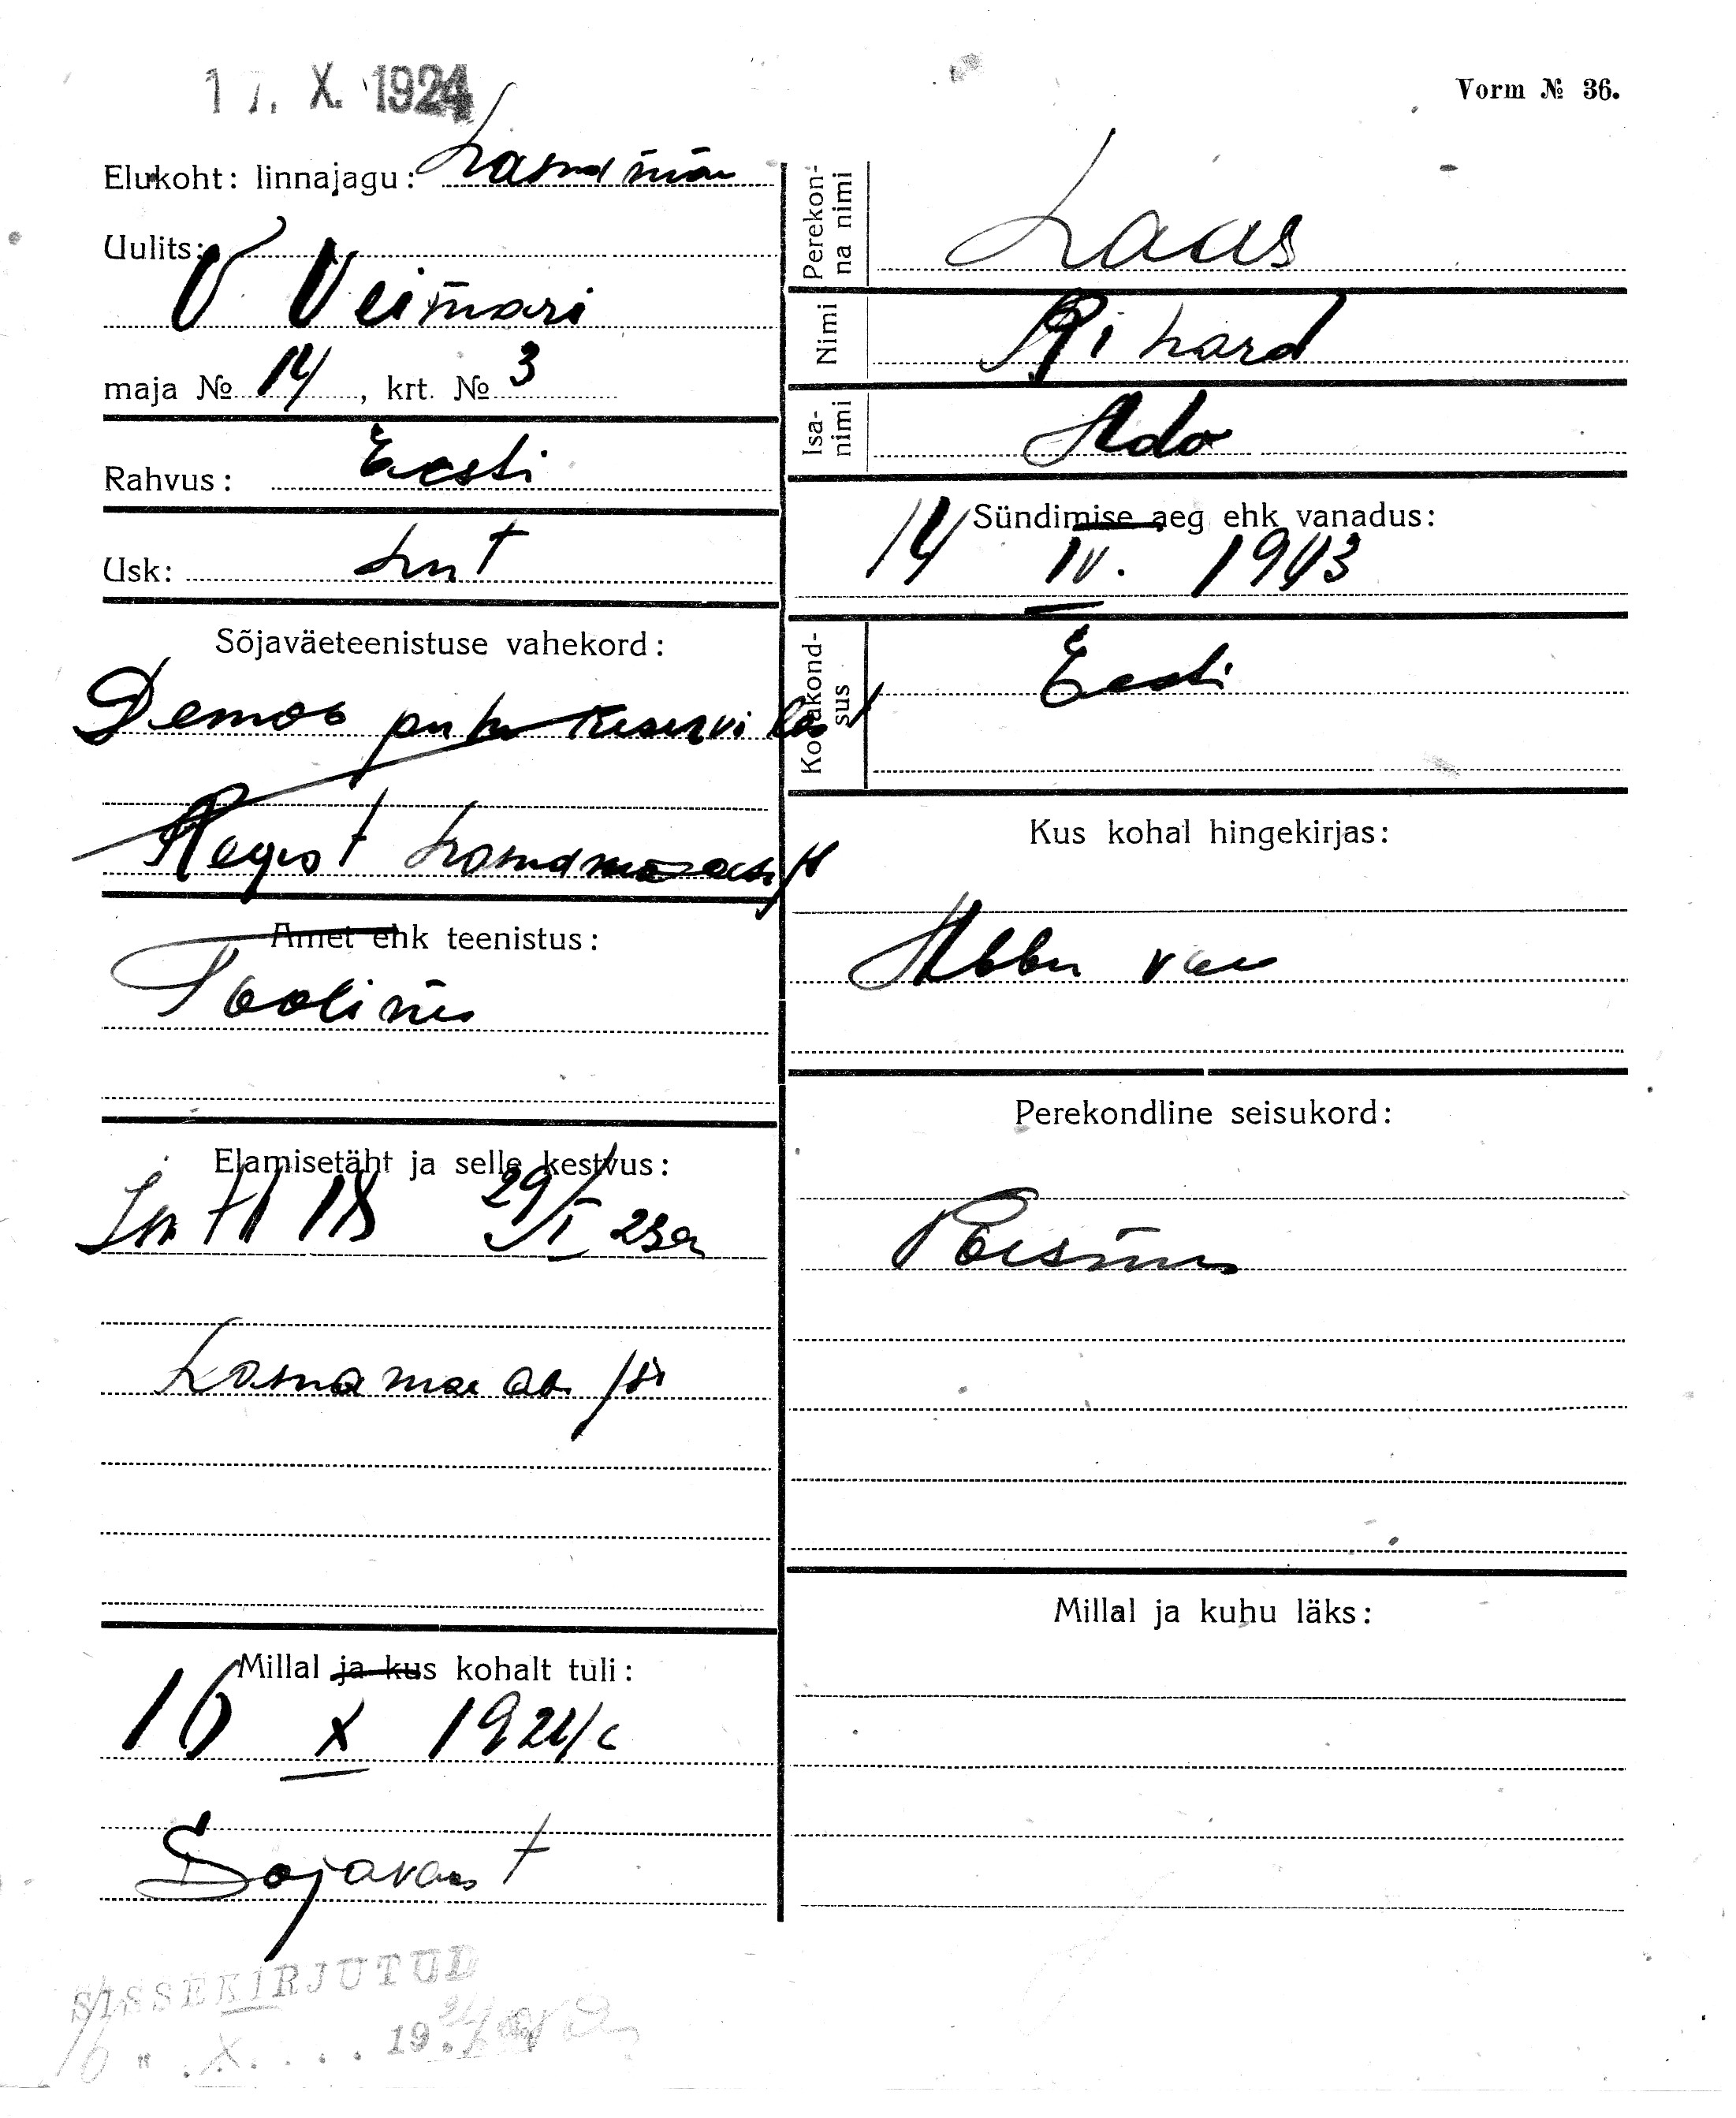 17. X. 1924
Vorm № 36.
Elukoht: linnajagu: Lasnamäe
Uulits:
V Veimari
maja № 14, krt. № 3
Rahvus: Eesti
Usk: Lut
Sõjaväeteenistuse vahekord:
Demob reservi
Regist Lasnamäe
Amet ehk teenistus:
Tööline
Elamisetäht ja selle kestvus:
118 29/I 23a
Lasnamäe
Millal ja kus kohalt tuli:
16 X 1924
Sojavaest
SISSEKIRJUTUD
16 " X. 19
Perekonna nimi
Laas
Nimi
Rihard
Isanimi
Ado
Sündimise aeg ehk vanadus:
14 IV. 1903
Kodakondsus
Eesti
Kus kohal hingekirjas:
Abbu
Perekondline seisukord:
Poismees
Millal ja kuhu läks: